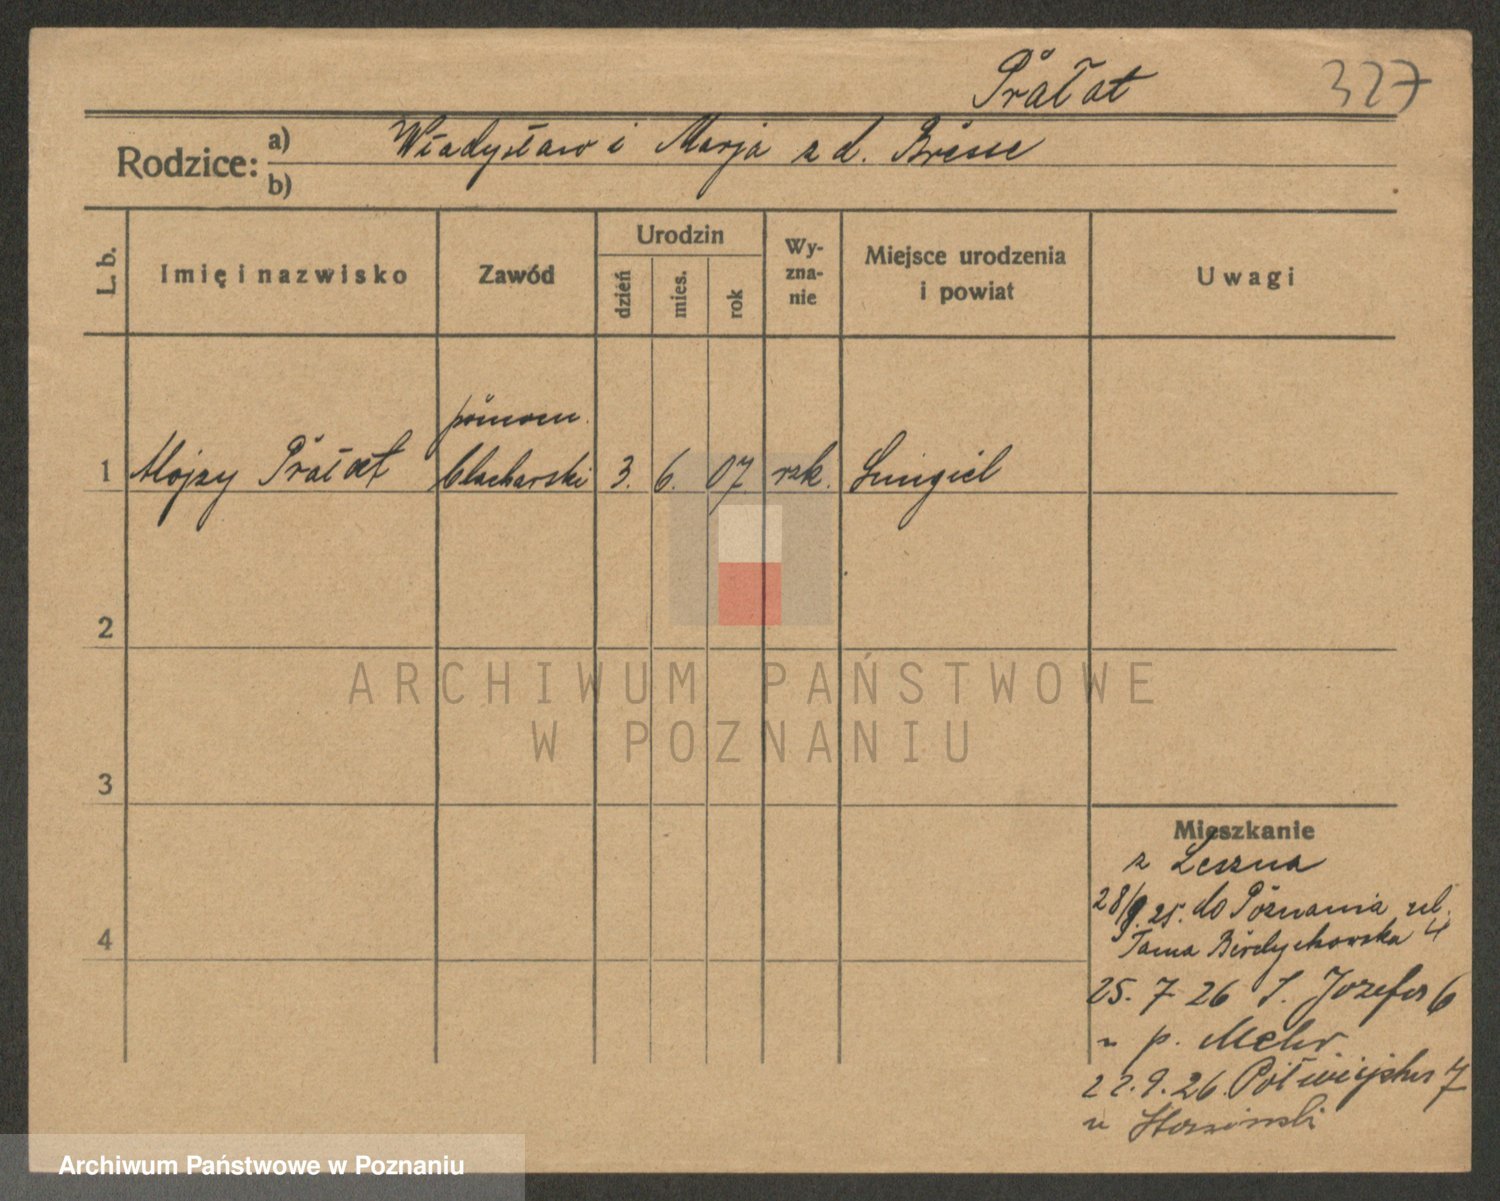 Prałat 327
Rodzice: a) Władysław i Marja z d. Bresse
b)
L. b. Imię i nazwisko Zawód Urodzin dzień mies. rok Wy-zna-nie Miejsce urodzenia i powiat Uwagi
pomocn.
1 Alojzy Prałat blacharski 3. 6. 07. rzk. Śmigiel
2
ARCHIWUM PAŃSTWOWE
W POZNANIU
3
Mieszkanie
z Leszna
28/9. 25. do Poznania ul.
Tama Berdychowska 4
4
25. 7 26 S. Józefa 6
u p. Mehr
22. 9. 26. Półwiejska 7
u
Archiwum Państwowe w Poznaniu